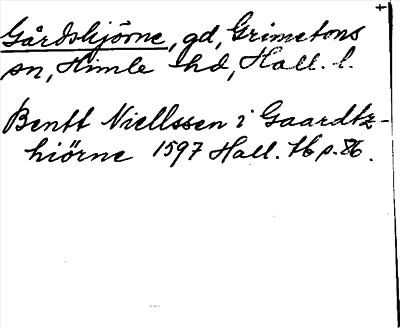 Gårdshjörne, gd, Grimetons
sn, Himle hd, Hall. l.
Bentt Niellssen i Gaardtz-
hiörne 1597 Hall. tb p. 86.